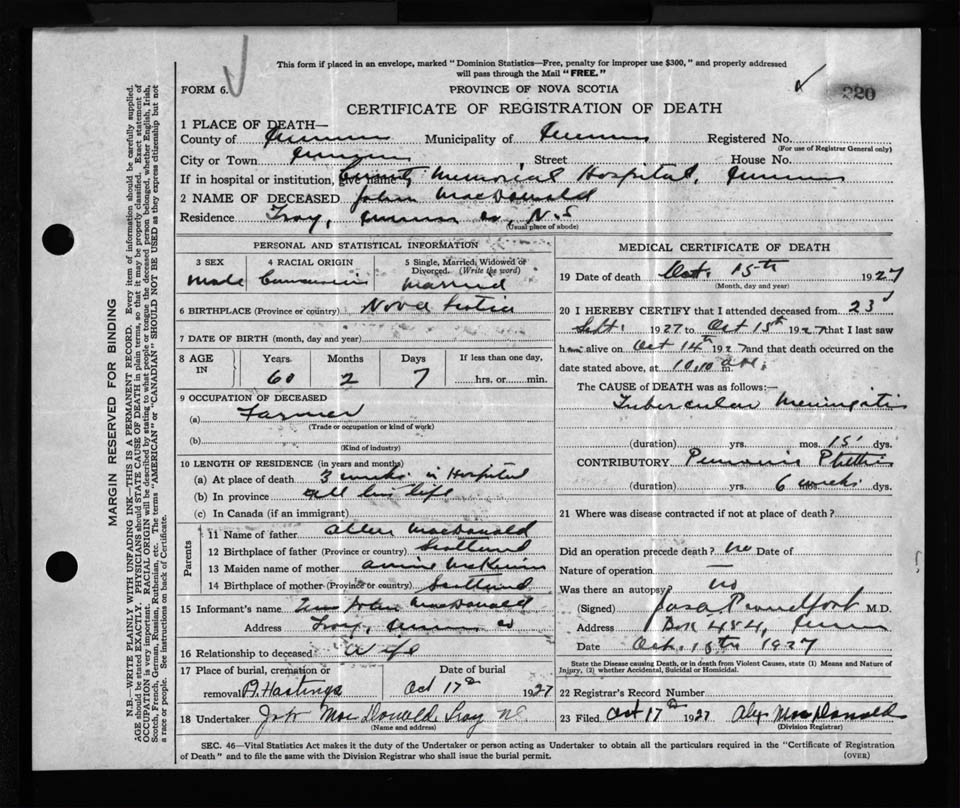 This form if placed in an envelope, marked "Dominion Statistics—Free, penalty for improper use $300," and properly addressed
will pass through the Mail "FREE."
FORM 6.
PROVINCE OF NOVA SCOTIA
220
CERTIFICATE OF REGISTRATION OF DEATH
1 PLACE OF DEATH—
County of Municipality of Registered No.
(For use of Registrar General only)
City or Town Street House No.
If in hospital or institution, give name Memorial Hospital,
2 NAME OF DECEASED John MacDonald
Residence Troy, Co, N.S
(Usual place of abode)
PERSONAL AND STATISTICAL INFORMATION
3 SEX
Male
4 RACIAL ORIGIN
5 Single, Married, Widowed or Divorced. (Write the word)
Married
6 BIRTHPLACE (Province or country) Nova Scotia
7 DATE OF BIRTH (month, day and year)
8 AGE IN
Years. Months Days If less than one day,
60 2 7 hrs. or min.
9 OCCUPATION OF DECEASED
(a) Farmer
(Trade or occupation or kind of work)
(b)
(Kind of industry)
10 LENGTH OF RESIDENCE (in years and months)
(a) At place of death 3 weeks in Hospital
(b) In province all his life
(c) In Canada (if an immigrant)
Parents
11 Name of father Allen MacDonald
12 Birthplace of father (Province or country) Scotland
13 Maiden name of mother
14 Birthplace of mother (Province or country) Scotland
15 Informant's name Mrs John MacDonald
Address Troy, Co
16 Relationship to deceased Wife
17 Place of burial, cremation or removal P. Hastings
Date of burial
Oct 17th 1927
18 Undertaker MacDonald, Troy
(Name and address)
MEDICAL CERTIFICATE OF DEATH
19 Date of death Oct. 15th 1927
(Month, day and year)
20 I HEREBY CERTIFY that I attended deceased from 23d
Sept. 1927 to Oct 15th 1927 that I last saw
h alive on Oct 14th 1927 and that death occurred on the
date stated above, at 10.10 m.
The CAUSE OF DEATH was as follows:—
Tubercular Meningitis
(duration) yrs. mos. 15 dys.
CONTRIBUTORY
(duration) yrs. 6 weeks dys.
21 Where was disease contracted if not at place of death?
Did an operation precede death? no Date of
Nature of operation —
Was there an autopsy? no
(Signed) M.D.
Address Box 484,
Date Oct. 15th 1927
State the Disease causing Death, or in death from Violent Causes, state (1) Means and Nature of
Injury, (2) whether Accidental, Suicidal or Homicidal.
22 Registrar's Record Number
23 Filed Oct 17th 1927
(Division Registrar)
SEC. 46—Vital Statistics Act makes it the duty of the Undertaker or person acting as Undertaker to obtain all the particulars required in the "Certificate of Registration
of Death" and to file the same with the Division Registrar who shall issue the burial permit.
(OVER)
MARGIN RESERVED FOR BINDING
N.B.—WRITE PLAINLY WITH UNFADING INK—THIS IS A PERMANENT RECORD. Every item of information should be carefully supplied.
AGE should be stated EXACTLY. PHYSICIANS should STATE CAUSE OF DEATH in plain terms, so that it may be properly classified. Exact statement of
OCCUPATION is very important. RACIAL ORIGIN will be described by stating to what people or tongue the deceased person belonged, whether English, Irish,
Scotch, French, German, Russian, Ruthenian, etc. The terms "AMERICAN" or "CANADIAN" SHOULD NOT BE USED as they express citizenship but not
a race or people. See instructions on back of Certificate.